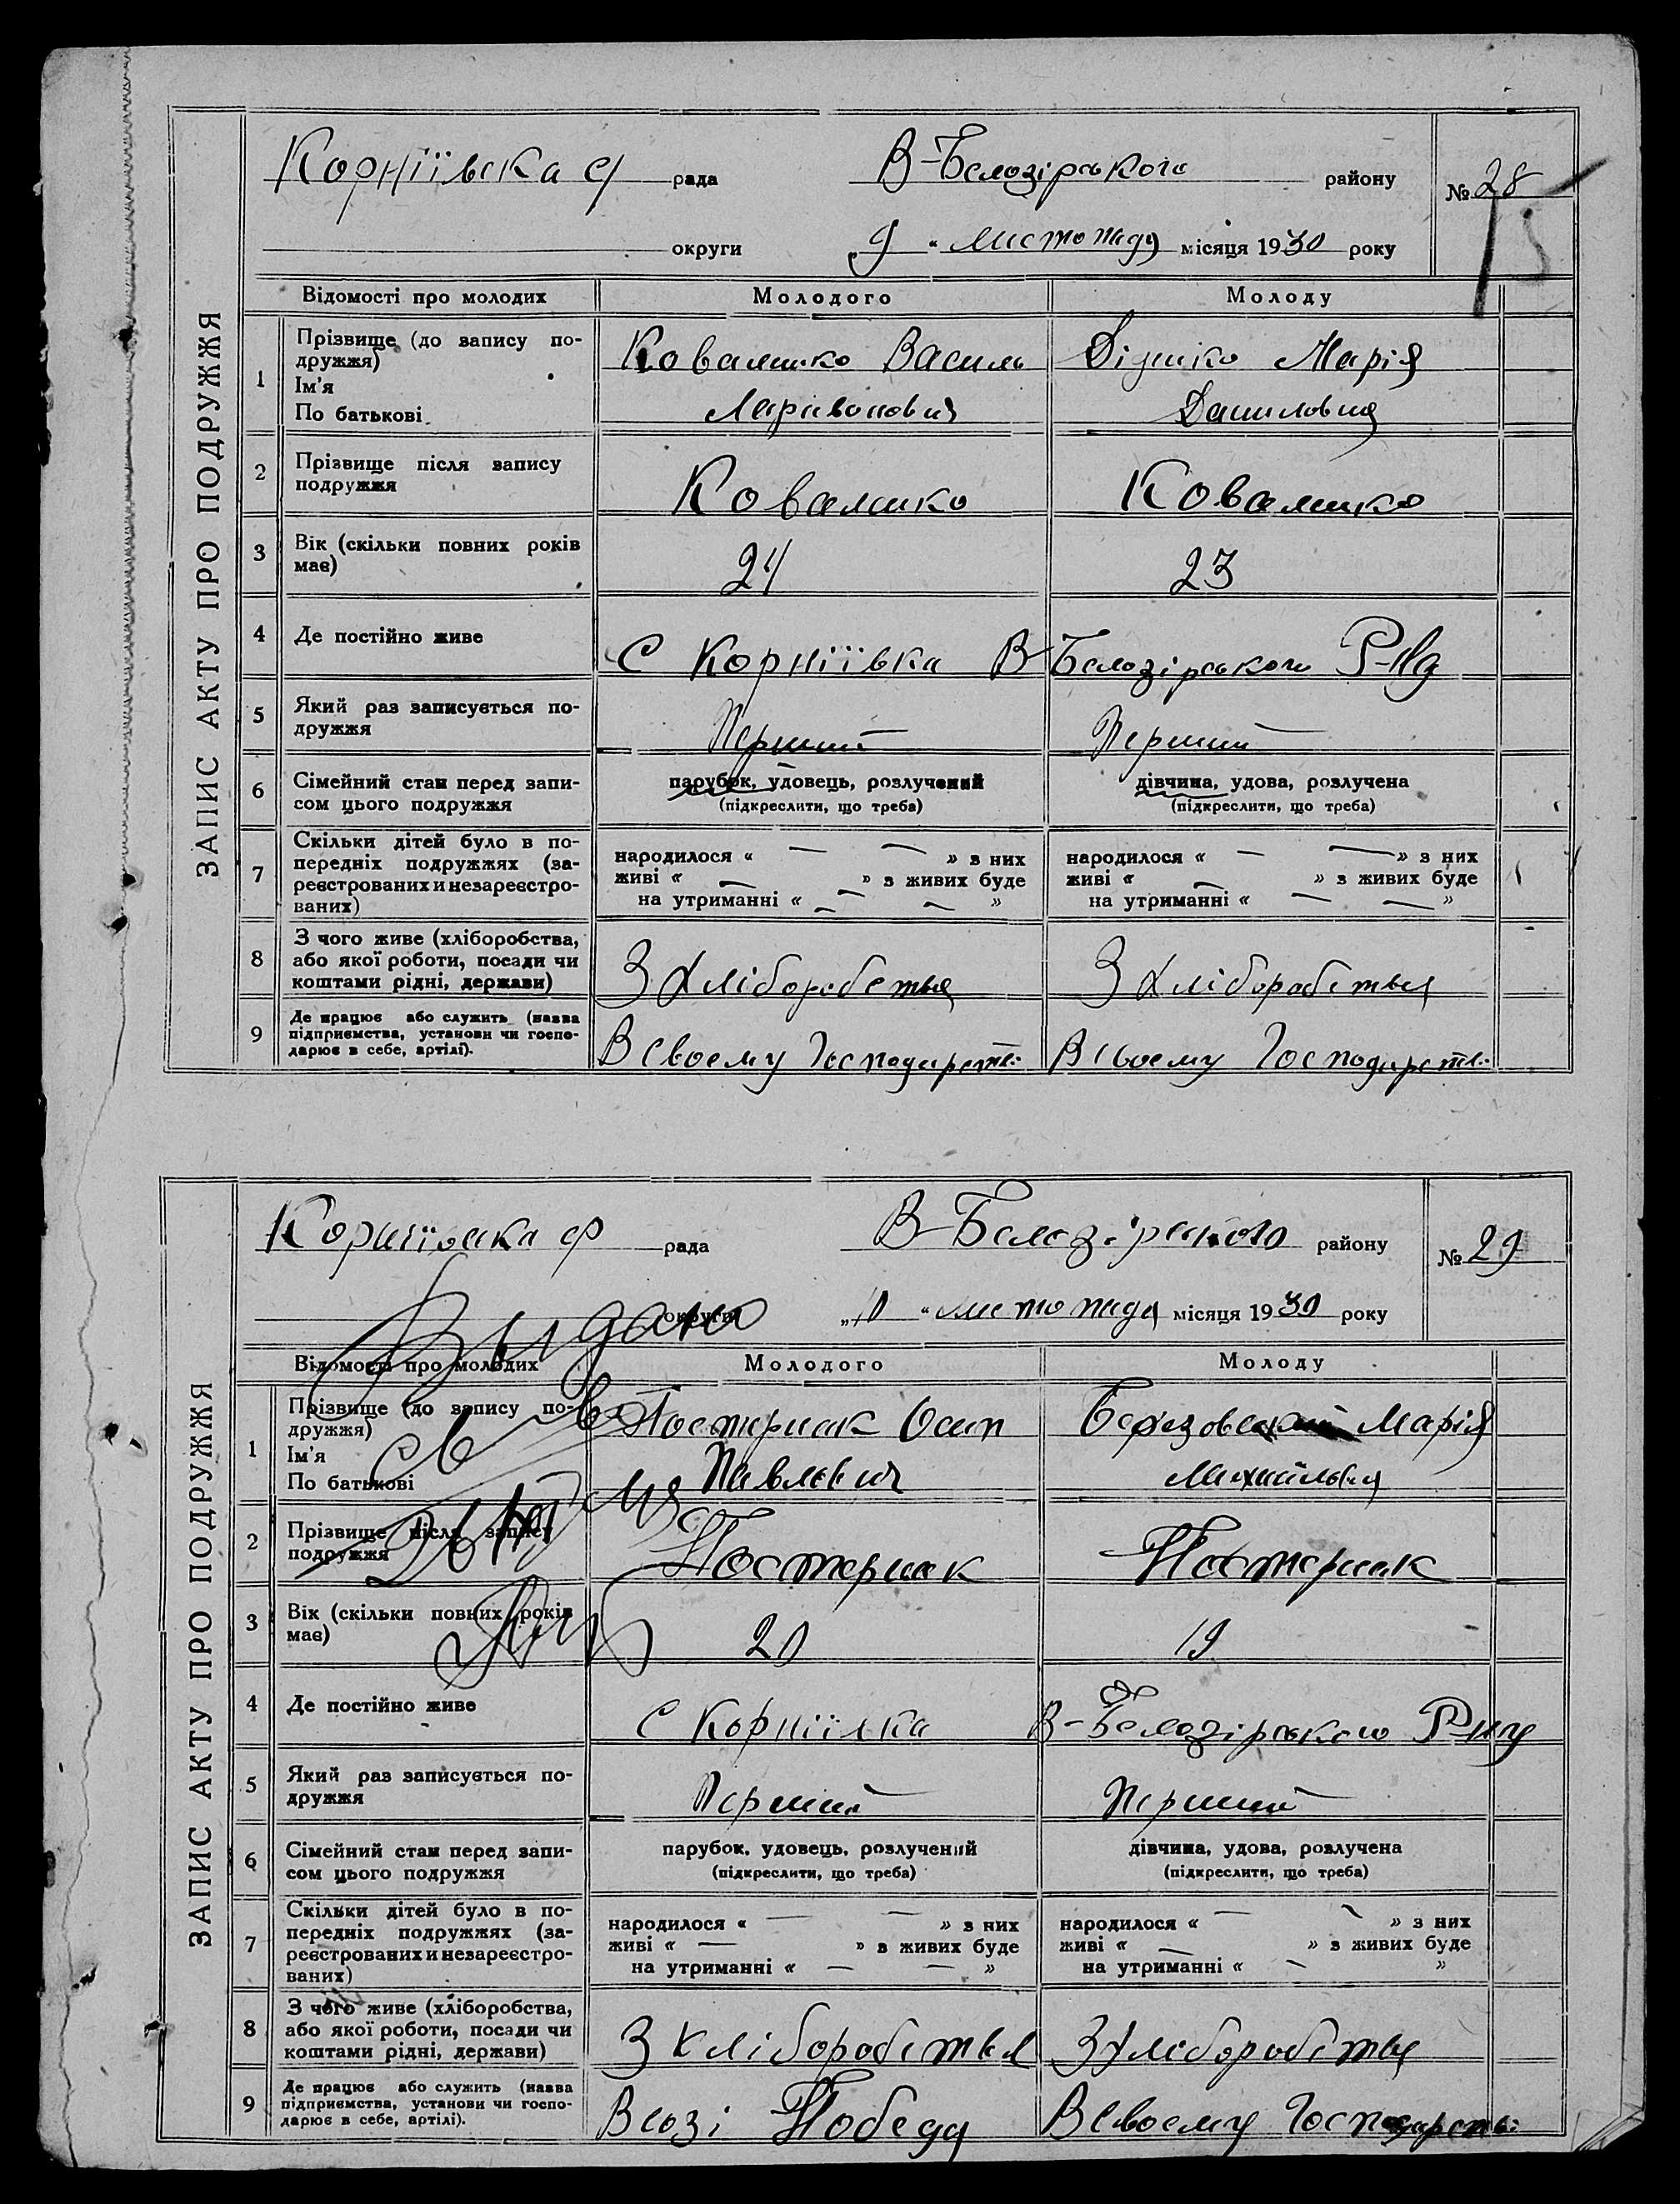 ЗАПИС АКТУ ПРО ПОДРУЖЖЯ
Корніївска с/ рада В-Белозірського району № 28
округи „9“ листопада місяця 1930 року
Відомості про молодих Молодого Молоду
1 Прізвище (до запису по-
дружжя)
Ім'я
По батькові
Коваленко Василь
Ларивонович
Марія
Даниловна
2 Прізвище після запису
подружжя
Коваленко Коваленко
3 Вік (скільки повних років
має)
24 23
4 Де постійно живе С Корніївка В-Белозірського Р-на
5 Який раз записується по-
дружжя
Перший Перший
6 Сімейний стан перед запи-
сом цього подружжя
парубок, удовець, розлучений
(підкреслити, що треба)
дівчина, удова, розлучена
(підкреслити, що треба)
7 Скільки дітей було в по-
передніх подружжях (за-
реєстрованих и незареєстро-
ваних)
народилося « — — » з них
живі « — » з живих буде
на утриманні « — — »
народилося « — — » з них
живі « — » з живих буде
на утриманні « — — »
8 З чого живе (хліборобства,
або якої роботи, посади чи
коштами рідні, держави)
З хліборобства З хліборобства
9 Де працює або служить (назва
підприємства, установи чи госпо-
дарює в себе, артілі).
В своему Господарстві В своему Господарстві
ЗАПИС АКТУ ПРО ПОДРУЖЖЯ
Корніївска с/р рада В-Белозірського району № 29
округи „10“ листопада місяця 1930 року
Видано
Відомості про молодих Молодого Молоду
1 Прізвище (до запису по-
дружжя)
Ім'я
По батькові
Постернак Осип
Павлович
Марія
Михайловна
2 Прізвище після запису
подружжя
Постернак Постернак
3 Вік (скільки повних років
має)
20 19
4 Де постійно живе С Корніївка В-Белозірського Р-ну
5 Який раз записується по-
дружжя
Перший Перший
6 Сімейний стан перед запи-
сом цього подружжя
парубок, удовець, розлучений
(підкреслити, що треба)
дівчина, удова, розлучена
(підкреслити, що треба)
7 Скільки дітей було в по-
передніх подружжях (за-
реєстрованих и незареєстро-
ваних)
народилося « — — » з них
живі « — » з живих буде
на утриманні « — — »
народилося « — — » з них
живі « — » з живих буде
на утриманні « — »
8 З чого живе (хліборобства,
або якої роботи, посади чи
коштами рідні, держави)
З хліборобства З хліборобства
9 Де працює або служить (назва
підприємства, установи чи госпо-
дарює в себе, артілі).
В созі Победа В своему Господарстві